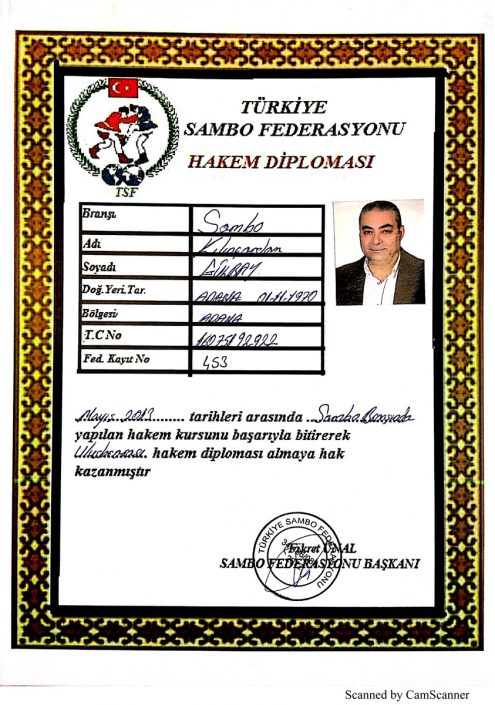 TSF
TÜRKİYE
SAMBO FEDERASYONU
HAKEM DİPLOMASI
Branşı Sambo
Adı
Soyadı
Doğ.Yeri.Tar. ADANA 01.11.1970
Bölgesi ADANA
T.C No
Fed. Kayıt No 453
Mayıs 2013......... tarihleri arasında
yapılan hakem kursunu başarıyla bitirerek
Uluslararası. hakem diploması almaya hak
kazanmıştır
TÜRKİYE SAMBO FEDERASYONU
Fikret ÜNAL
SAMBO FEDERASYONU BAŞKANI
Scanned by CamScanner